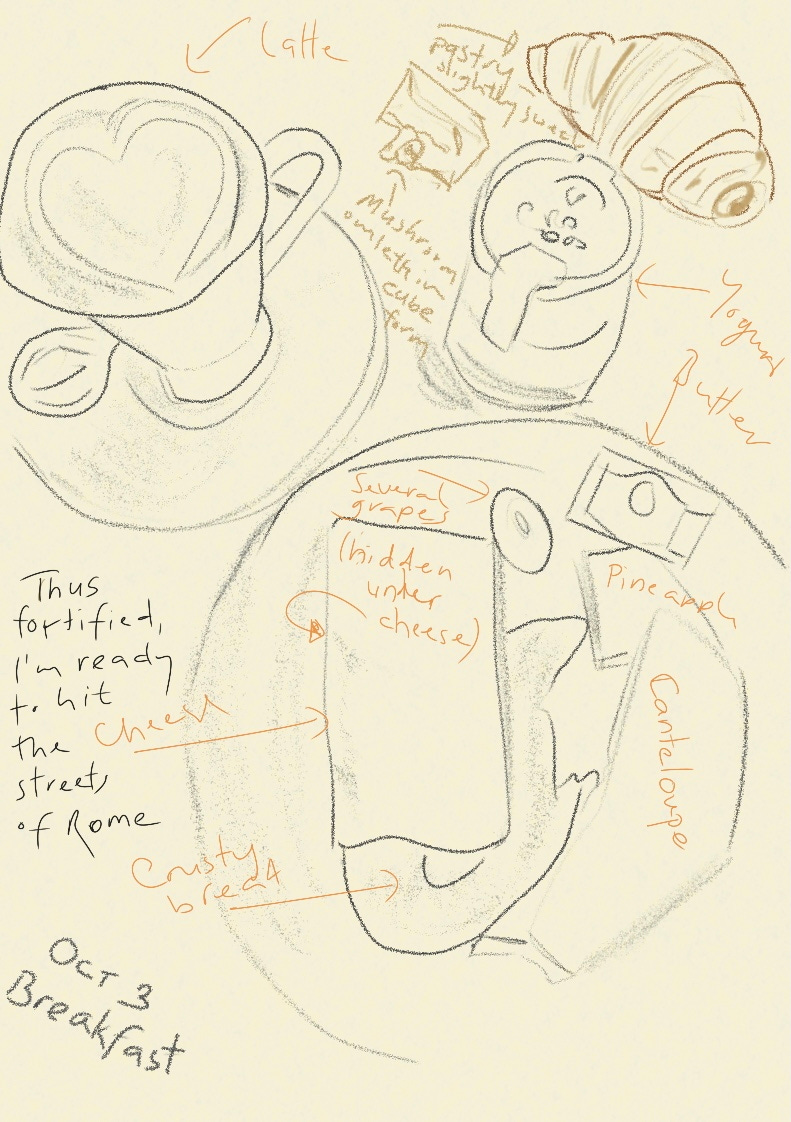 Latte
pastry -
slightly sweet
Mushroom
omleth in
cube
form
Yogurt
Butter
Several
grapes
(hidden
under
cheese)
Pineapple
Canteloupe
Thus
fortified,
I'm ready
to hit
the
streets
of Rome
Cheese
Crusty
bread
Oct 3
Breakfast